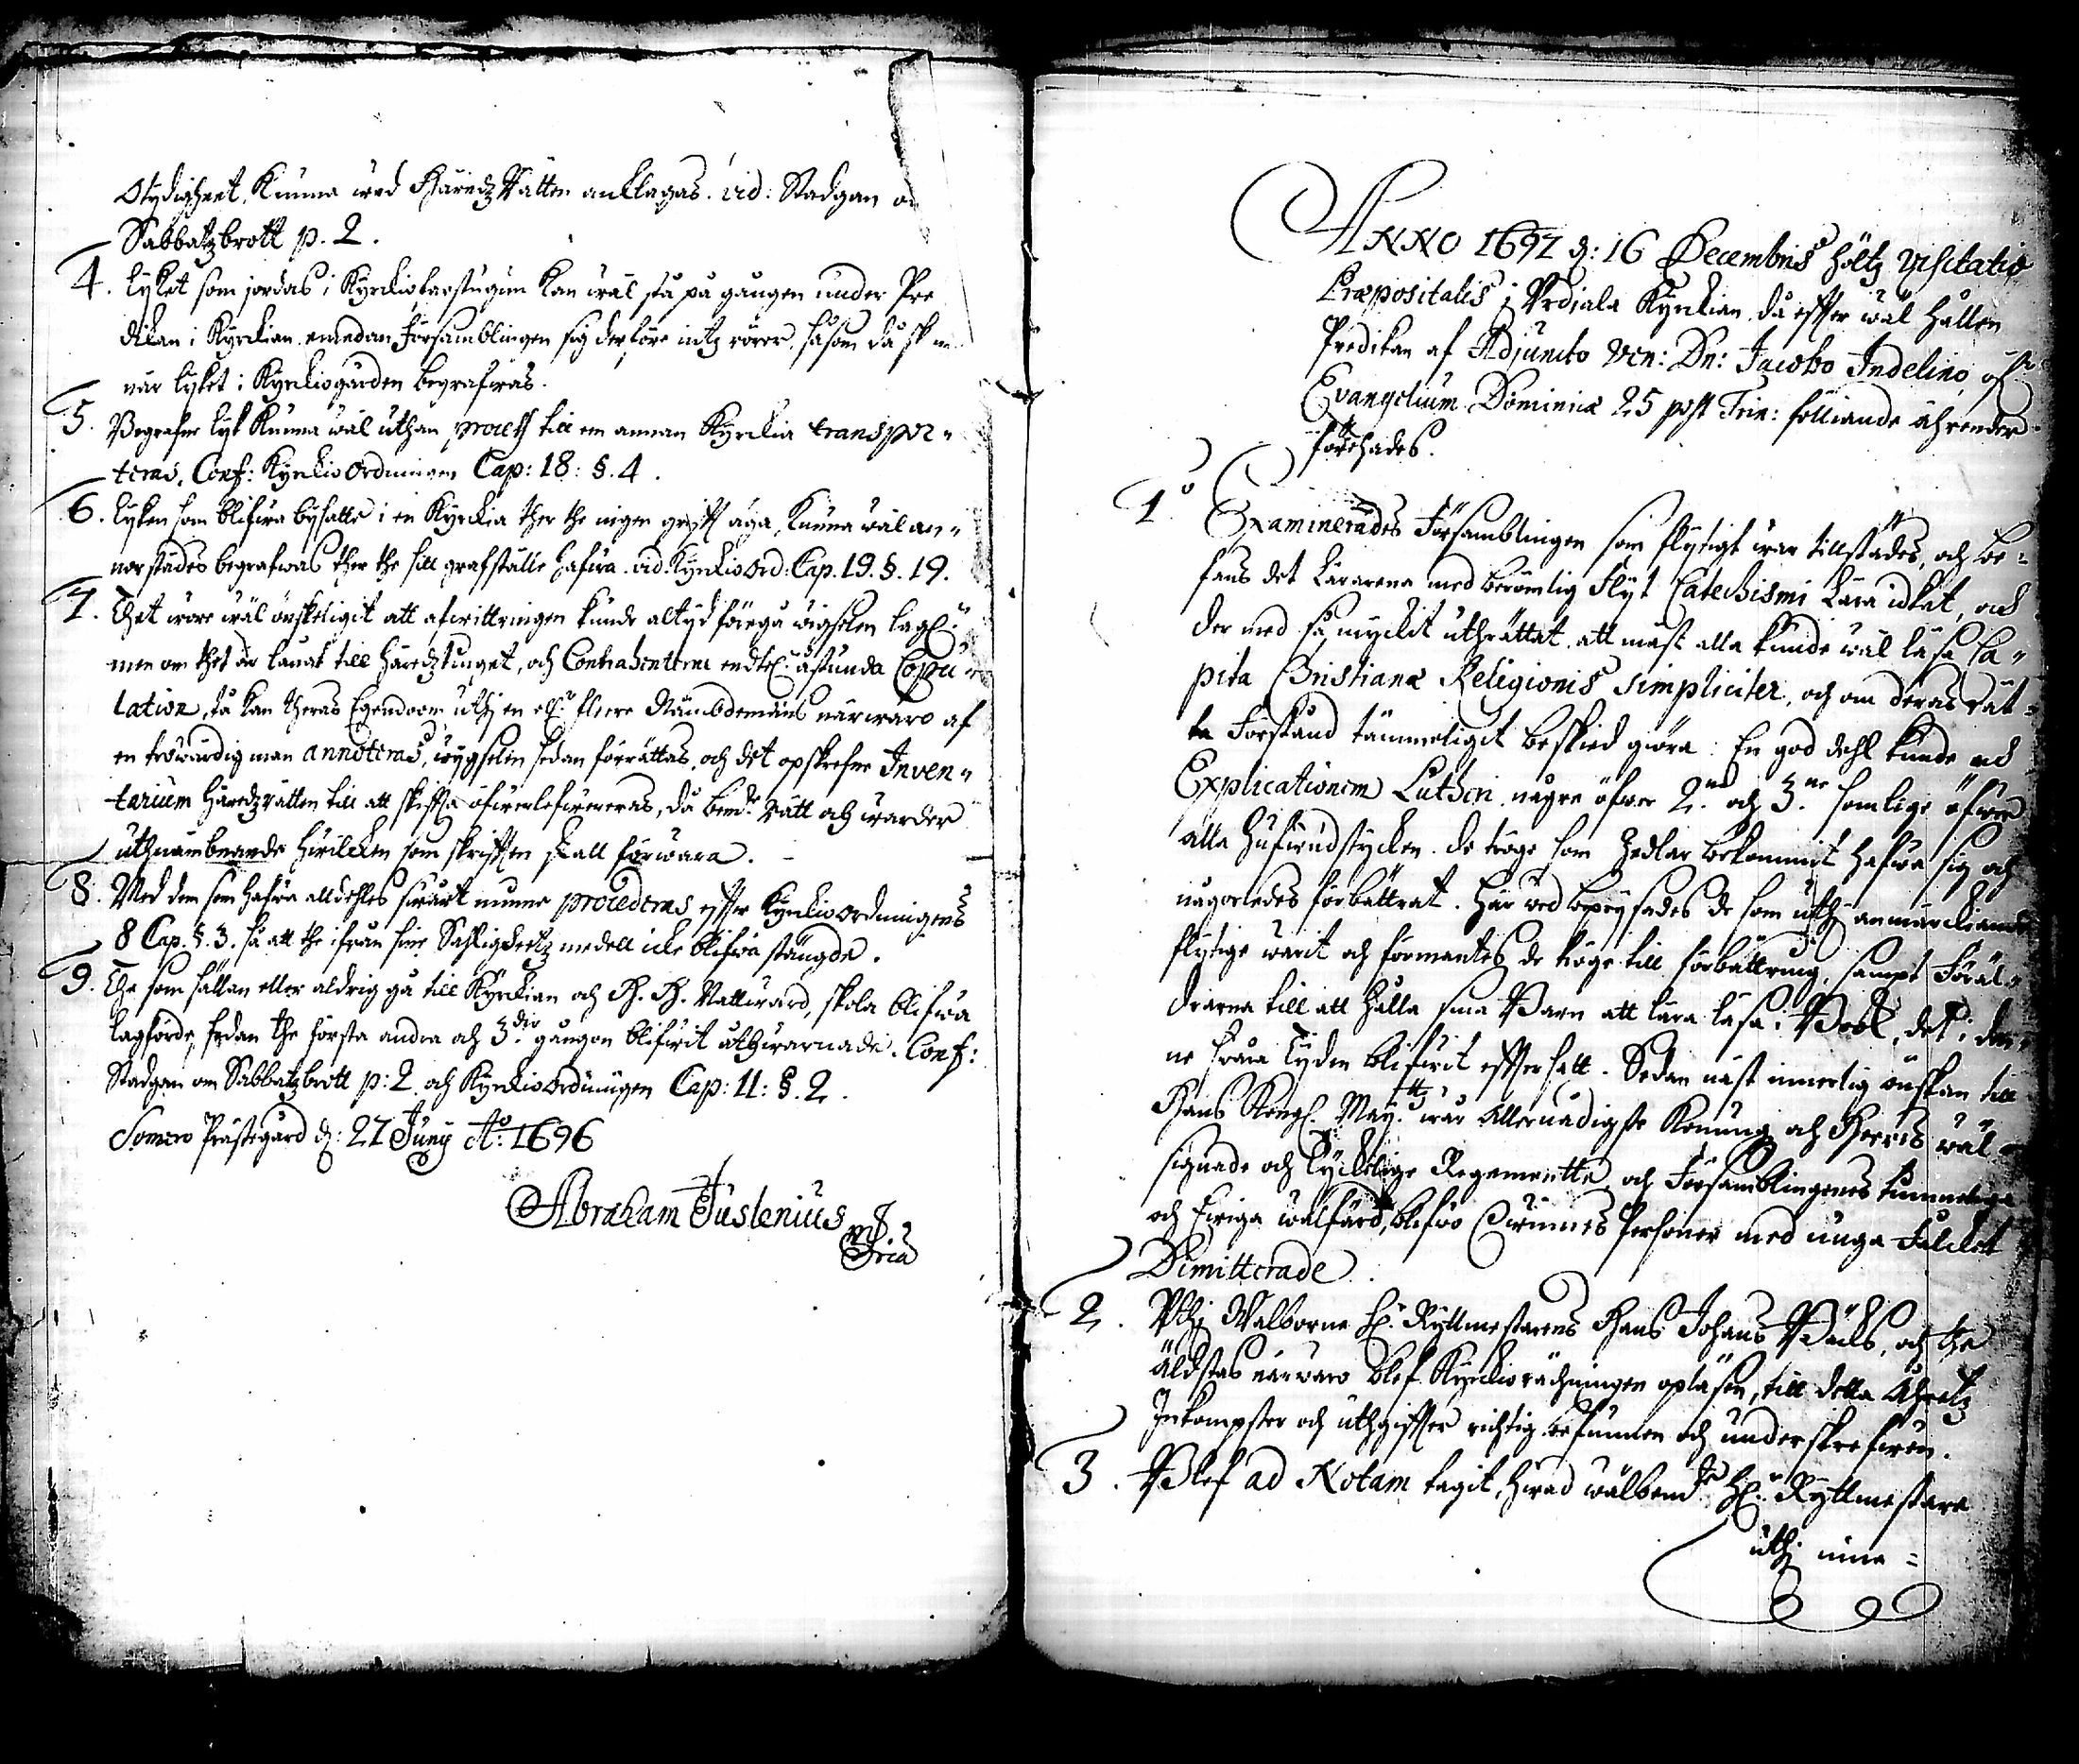 Otydigheet, Kunna wed Häredz Rätten anklagas. vid: Stadgan o
Sabbatzbrott p. 2.
4. Lyket som jordas i Kyrckiofarstugun kan wäl stå på gången under Pre
dikan i Kyrckian, emedan Församblingen sig der före intz rörer, såsom då
när lyket i Kyrckiogården begrafwas.
5. Begrafne lyk Kunna wäl uthan process till en annan Kyrckia transpor„
teras, Conf: Kyrckio Ordningen Cap: 18: §. 4.
6. Lyken som blifwa bysatte i en Kyrckia ther the ingen grifft äga, kunna wäl an„
norstädes begrafwas ther the sitt grafställe hafwa. vid. Kyrckio Ord. Cap. 19. §. 19.
7. Thet wore wäl önskeligit att afwittringen kunde altyd föregå wigselen lagl:
men om thet är langt till häredztinget, och Contrahenterne endtel: åstunda Copu„
lation, då kan theras Egendoom uthj en el: flere Nämbdemäns närwaro af
en trowärdig man annoteras, wygselen sedan förrättas, och det opskrefne Inven„
tarium häredzrätten till att skifta öfwerlefwereras, då bem:te rätt och warder
uthnämbnande hwilcken som skrifften skall förwara.
8. Med dem som hafwa alldehles swårt minne procederas effter Kyrckio ordningens
8 Cap. §. 3. så att the ifrån sine Sahligheetz medell icke blifwa stängde.
9. The som sällan eller aldrig gå till Kyrckian och H. H. Nattward, skola blifwa
lagförde, sedan the första andra och 3:die gången blifwit uthwarnade. Conf:
Stadgan om Sabbatzbrott p: 2. och Kyrckio Ordningen Cap: 11: §. 2.
Somero Prästegård d: 27 Junij A:o 1696
Abraham Juslenius
mpria
ANNO 1697 d: 16 Decembris höltz Visitatio
Præpositalis j Vrdiala Kyrckian, då effter wäl hållen
Predikan af Adjuncto Ven: Dn: Jacobo Indelino, öf:r
Evangelium Dominicæ 25 post Trin: fölliande ährender
förehades.
1:o Examinerades Församblingen som flytigt war tillstädes, och be„
fans det Lärarena med berömlig Flyt Catechismi Lära idkat, och
der med så myckit uthrättat, att mäst alla kunde wäl läsa Ca„
pita Christianæ Religionis simpliciter, och om deras rät„
ta Förstånd tämmeligit beskied giöra: En god dehl kunde ad
Explicationem Lutheri någre öfwer 2:ne och 3:ne somlige öfwer
alla hufwudstycken. De tröge som Zedlar bekommit hafwa sig och
någorledes förbättrat. Här wed beprysades de som uthj anmärckiande
flytige warit och förmantes de tröge till förbättring, sampt Föräl„
drarna till att hålla sina Barn att lära läsa i Book, det i den„
ne swåra Tyden blifwit effter satt. Sedan näst innerlig önskan till
Hans Kongl. May:ttz wår Allernådigste Konung och Herres wäl„
signade och lyckelige Regemente, och Församblingenes timmelige
och Ewiga wälfärd, blefwo Qwinnes Personer med unga Falcket
Dimitterade.
2. Uthj Walborne H: Ryttmestarens Hans Johans Bäcks, och the
äldstas närwaro blef Kyrckiorächningen opläsen, till detta Åhretz
Inkompster och uthgiffter richtig befunnen och underskrefwen.
3. Blef ad Notam tagit, hwad wälbem:te H:r Ryttmestare
uthj inne=